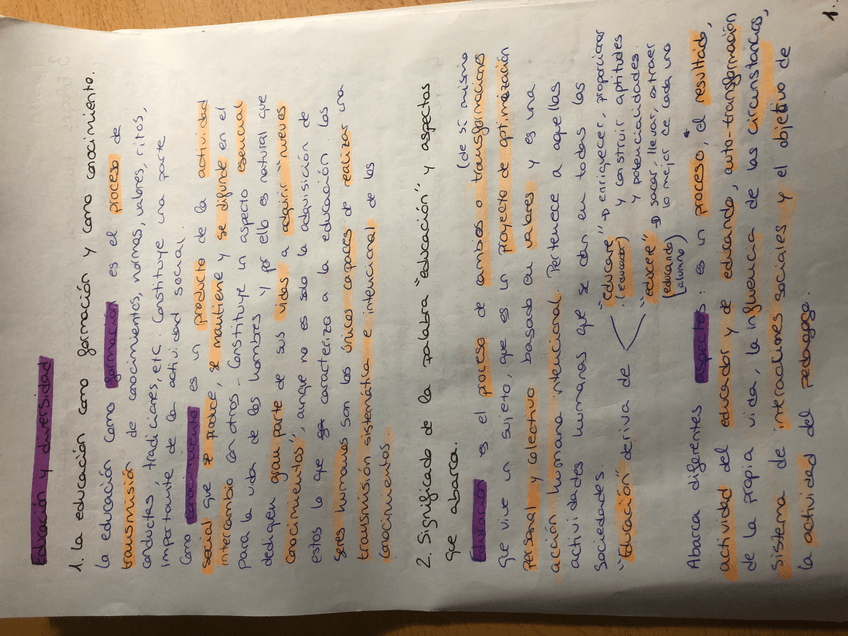 Educación y diversidad
1. La educación como formación y como conocimiento.
La educación como formación es el proceso de
transmisión de conocimientos, normas, valores, ritos,
conductas tradiciones, etc. Constituye una parte
importante de la actividad social.
Como conocimiento es un producto de la actividad
social que se produce, se mantiene y se difunde en el
intercambio con otros. Constituye un aspecto esencial
para la vida de los hombres y por ello es natural que
dediquen gran parte de sus vidas a adquirir "nuevos
conocimientos", aunque no es solo la adquisición de
estos lo que caracteriza a la educación. Los
seres humanos son los únicos capaces de realizar una
transmisión sistemática e intencional de los
conocimientos.
2. Significado de la palabra "educación" y aspectos
que abarca.
(de sí mismo
Educación es el proceso de cambios o transformaciones
que vive un sujeto, que es un proyecto de optimización
personal y colectivo basado en valores y es una
acción humana intencional. Pertenece a aquellas
actividades humanas que se dan en todas las
sociedades.
"Educación" deriva de
"educare" → enriquecer, proporcionar
(educador) y construir aptitudes
y potencialidades.
"educere" → sacar, llevar, extraer
(educando) lo mejor de cada uno
(alumno)
Abarca diferentes aspectos: es un proceso, el resultado,
actividad del educador y de educando, auto-transformación
de la propia vida, la influencia de las circunstancias,
sistema de interacciones sociales y el objetivo de
la actividad del pedagogo.
1.